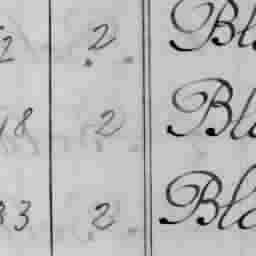 2 2 Bl
18 2 Bla
33 2 Bla